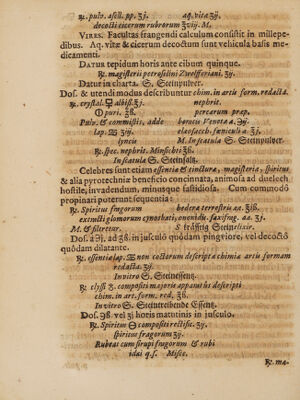 ℞. pulv. asell. pp. ʒj. aq. vitæ ʒij.
decocti cicerum rubrorum ℥viij. M.
VIRES. Facultas frangendi calculum consistit in millepe-
dibus. Aq. vitæ & cicerum decoctum sunt vehicula basis me-
dicamenti.
DATUR tepidum horis ante cibum quinque.
℞. magisterii petroselini Zwelfferiani. ʒij.
Datur in charta. S. Steinpulver.
Dos. & utendi modus describuntur chim. in artis form. redacta.
℞. crystal. albiss. ʒj. nephrit.
puri. percarum præp.
Pulv. & commisti, adde boracis Venetæ a. ℈ij.
lap. ʒij. elæosacch. fœniculi a ʒj.
lyncis M. In scatula S. Steinpulver.
℞. spe. nephrit. Minsichti ℥ß.
In scatula S. Steinsaltz.
Celebres sunt etiam essentiæ & tincturæ, magisteria, spiritus
& alia pyrotechniæ beneficio concinnata, animosa ad duelech
hostile, invadendum, minusque fastidiosa. Cum commodò
propinari poterunt sequentia:
℞. Spiritus fragorum hederæ terrestris aa. ℥ß.
extincti glomorum cynosbati, ononidis. faxifrag. aa. ʒj.
M. & filtretur. S. kräfftig Steinelixir.
Dos. a ℈j. ad ʒß. in jusculò quodam pingviore, vel decoctô
quôdam dilatante.
℞. essentiæ lap. non coctorum descriptæ chimiæ artis formam
redactæ. ʒij.
In vitro S. Steinessenz.
℞. clyssi compositi majoris apparatus descripti
chim. in art. form. red. ℥ß.
In vitro S. Steintreibende Essenz.
Dos. ℈ß. vel ʒj horis matutinis in jusculo.
℞. Spiritus compositi rectific. ʒij.
spiritus fragorum ʒij.
Rubeat cum sirupi fragorum & rubi
idæi q. s. Misce.
℞. ma-